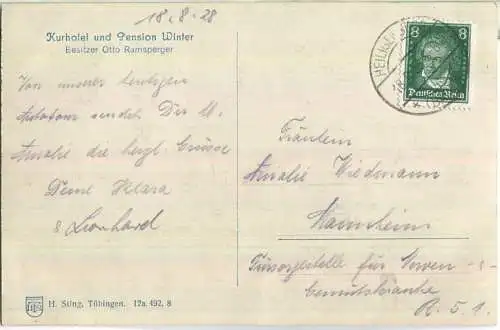 18.8.28
Kurhotel und Pension Winter
Besitzer Otto Ramsperger
Von unserer heutigen
Autotour sendet Dir u.
Amalie die herzl. Grüsse
Deine Klara
& Leonhard
H. Sting, Tübingen. 12a. 492, 8
8 8
Deutsches Reich
Fräulein
Amalie Wiedmann
Mannheim
Fürsorgestelle für Nerven- &
Gemütskranke
R. 5. 1.